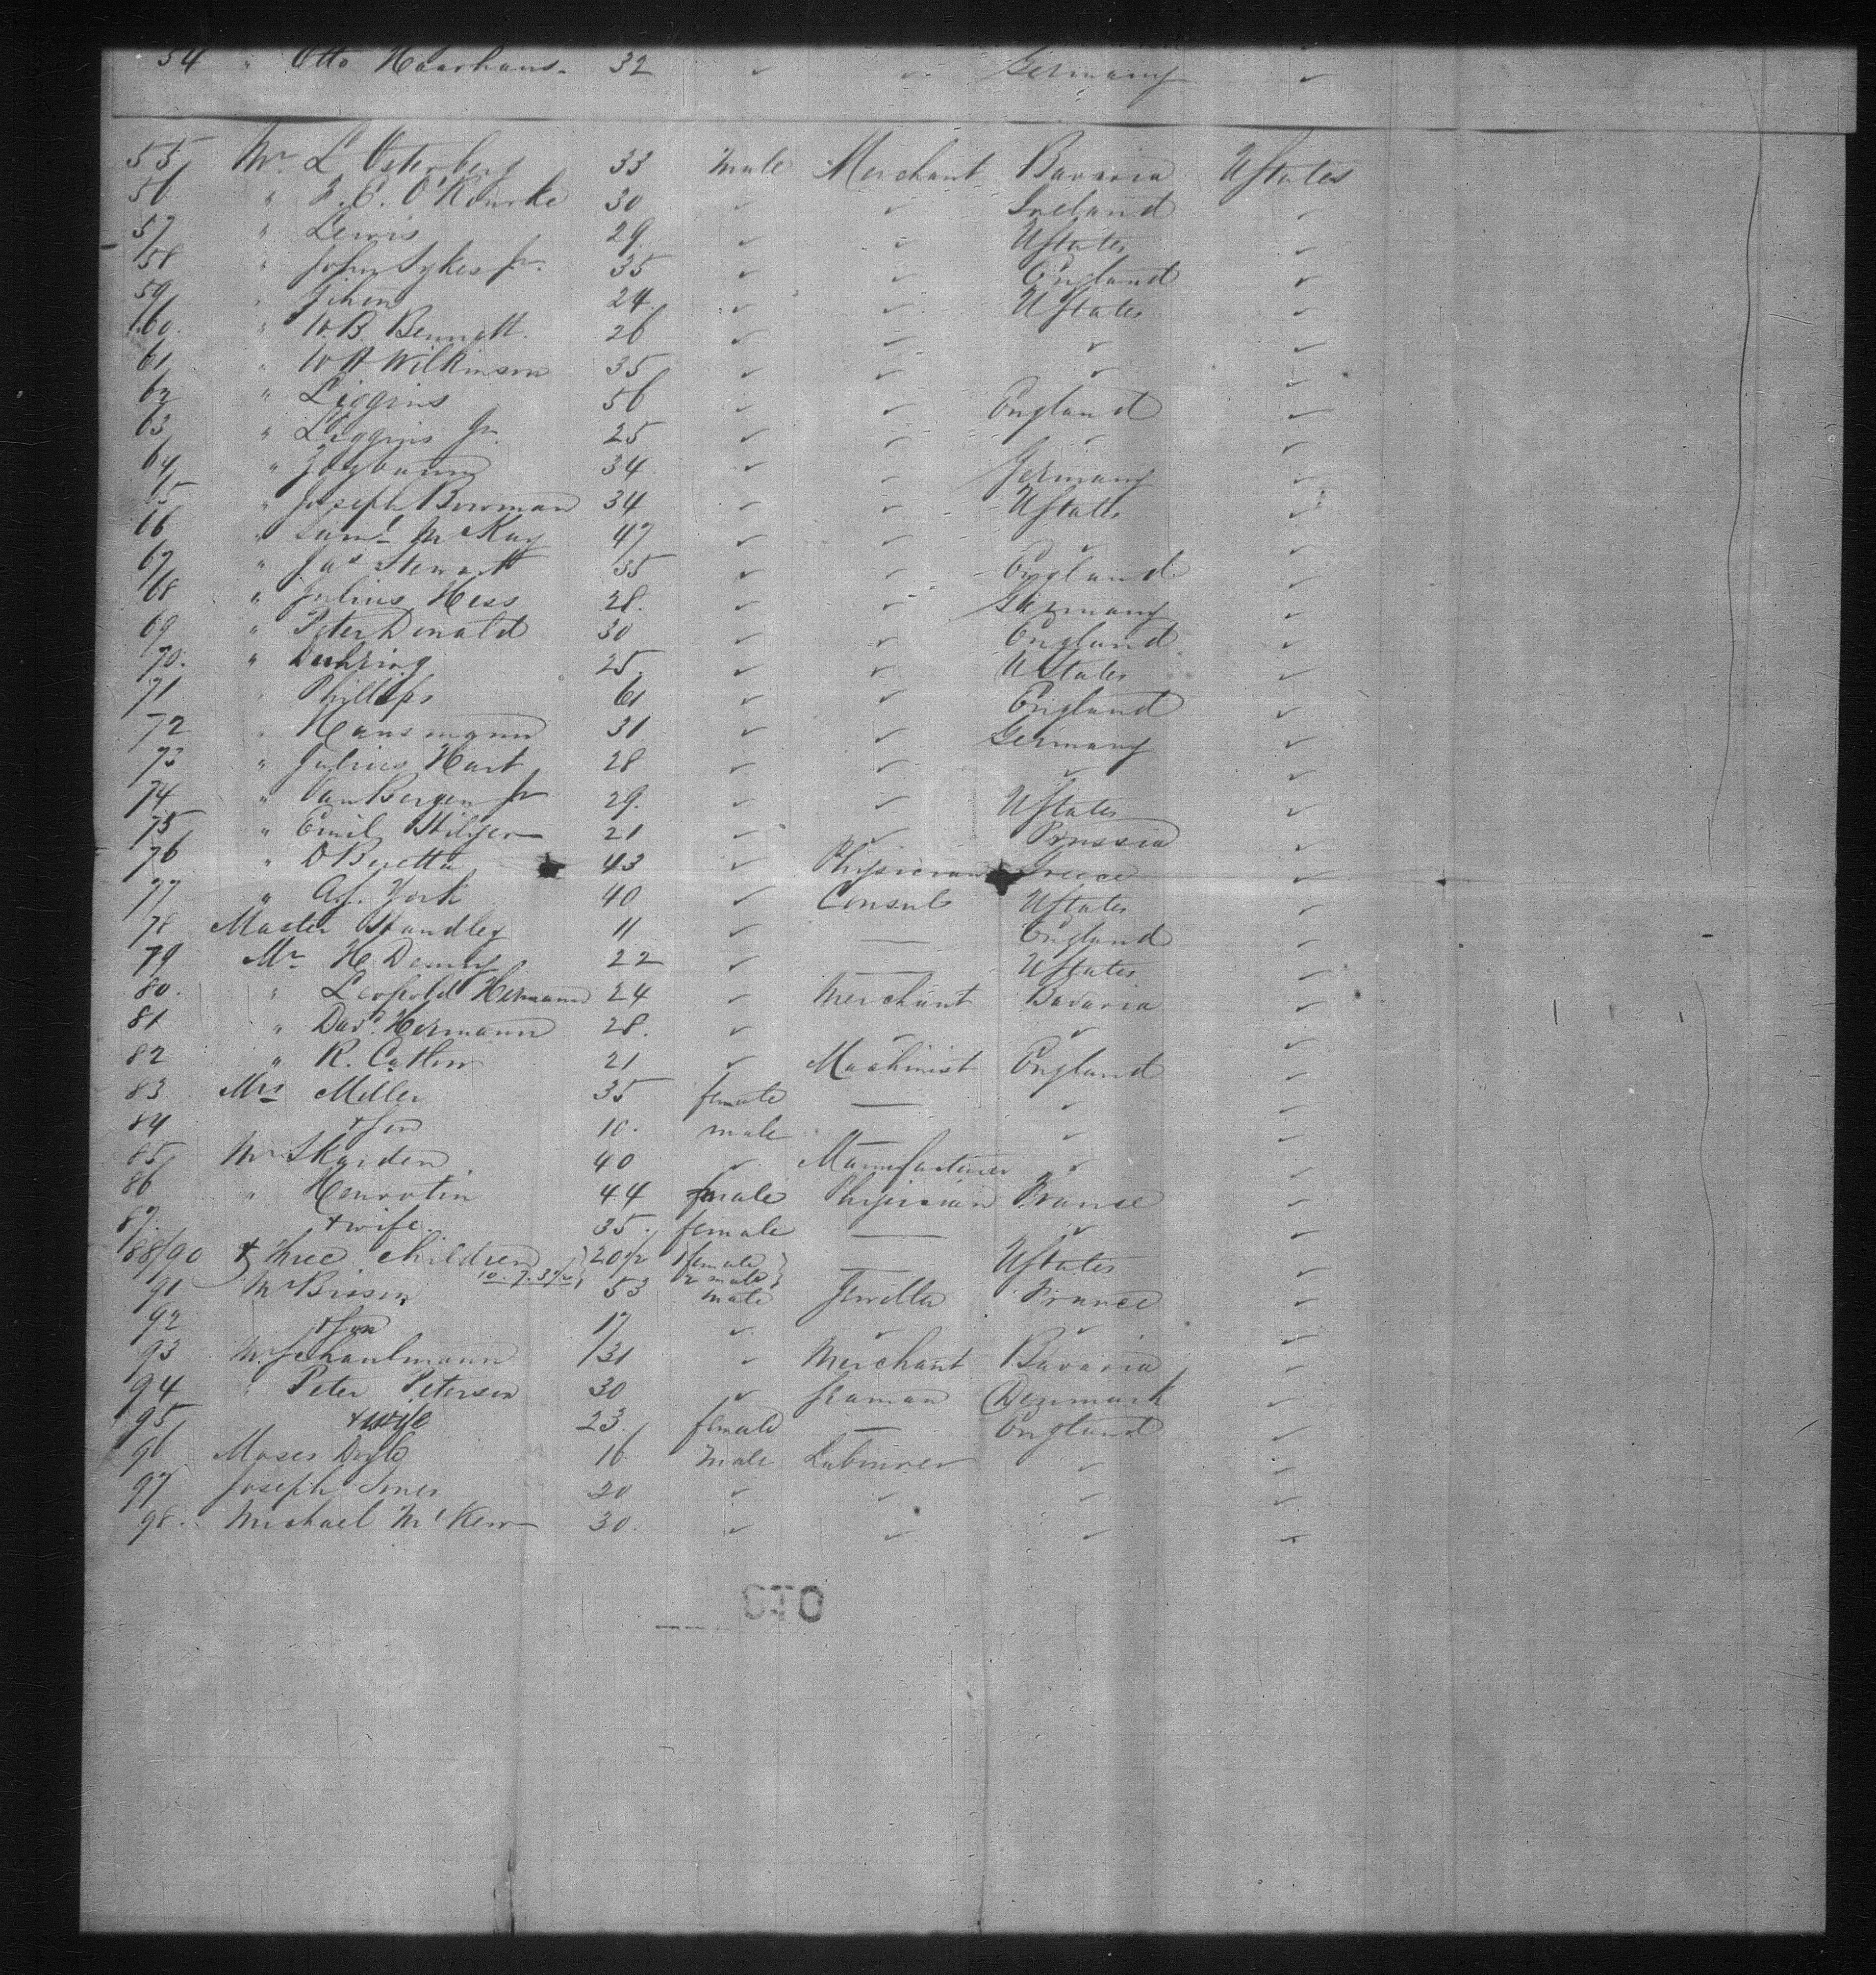 54 " Otto Haarhaus. 32 ✓ ✓ Germany ✓
55 Mr L Osterberg 33 Male Merchant Bavaria UStates
56 " O'Rourke 30 ✓ ✓ Ireland ✓
57 " Lewis 29. ✓ ✓ UStates ✓
58 " John Sykes Jr. 35 ✓ ✓ England ✓
59 " 24 ✓ ✓ UStates ✓
60. " W. B. Bennett. 26 ✓ ✓ ✓ ✓
61 " W H Wilkinson 35 ✓ ✓ ✓ ✓
62 " Liggins 56 ✓ ✓ England ✓
63 " Liggins Jr. 25 ✓ ✓ ✓ ✓
64 " 34 ✓ ✓ Germany ✓
65 " Joseph Bowman 34 ✓ ✓ UStates ✓
66 " Saml McKay 47 ✓ ✓ ✓ ✓
67 " Jas Stewart 35 ✓ ✓ England ✓
68 " Julius Hess 28. ✓ ✓ Germany ✓
69 " Peter Donald 30 ✓ ✓ England ✓
70. " Duhring 25. ✓ ✓ UStates ✓
71 " Phillips 61 ✓ ✓ England ✓
72 " Hansmann 31 ✓ ✓ Germany ✓
73 " Julius Hart 28 ✓ ✓ ✓ ✓
74 " Van Bergen Jr 29. ✓ ✓ UStates ✓
75 " Emil Hilger 21 ✓ ✓ Prussia ✓
76 " D Buretta 43 ✓ Physician Greece ✓
77 " A.J. York 40 ✓ Consul UStates ✓
78 Master Handley 11 ✓ — England ✓
79 Mr H Denny 22 ✓ — UStates ✓
80. " Leopold Hermann 24 ✓ Merchant Bavaria ✓
81 " Davd Hermann 28. ✓ ✓ ✓ ✓
82 " R. Catlow 21 ✓ Machinist England ✓
83 Mrs Miller 35 female — ✓ ✓
84 + son 10. male — ✓ ✓
85 Mr Skarden 40 ✓ Manufacturer ✓ ✓
86 " Henrotin 44 male Physician France ✓
87. + wife 35. female — ✓ ✓
88/90 + three children 10. 7. 3 1/2 } 20 1/2 1 female 2 male } — UStates ✓
91 Mr Brisen 53 male Jeweller France ✓
92 + son 17 ✓ ✓ ✓ ✓
93 Mr Schaulmann 31 ✓ Merchant Bavaria ✓
94 " Peter Petersen 30 ✓ Seaman Denmark ✓
95 + wife 23. female — England ✓
96 Moses Doyle 16 Male Labourer ✓ ✓
97 Joseph Jones 20 ✓ ✓ ✓ ✓
98. Michael McKew 30. ✓ ✓ ✓ ✓